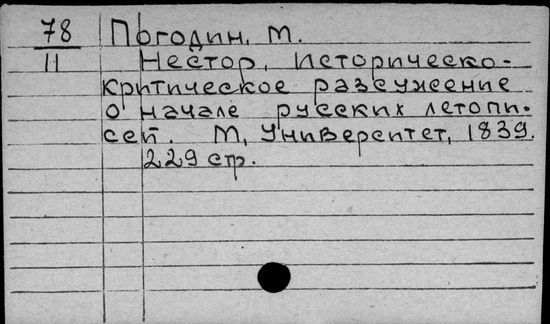 78 Погодин, М.
11 Нестор, историческо-
критическое разсужение
о начале русских летопи-
сей. М, Университет, 1839.
229 стр.